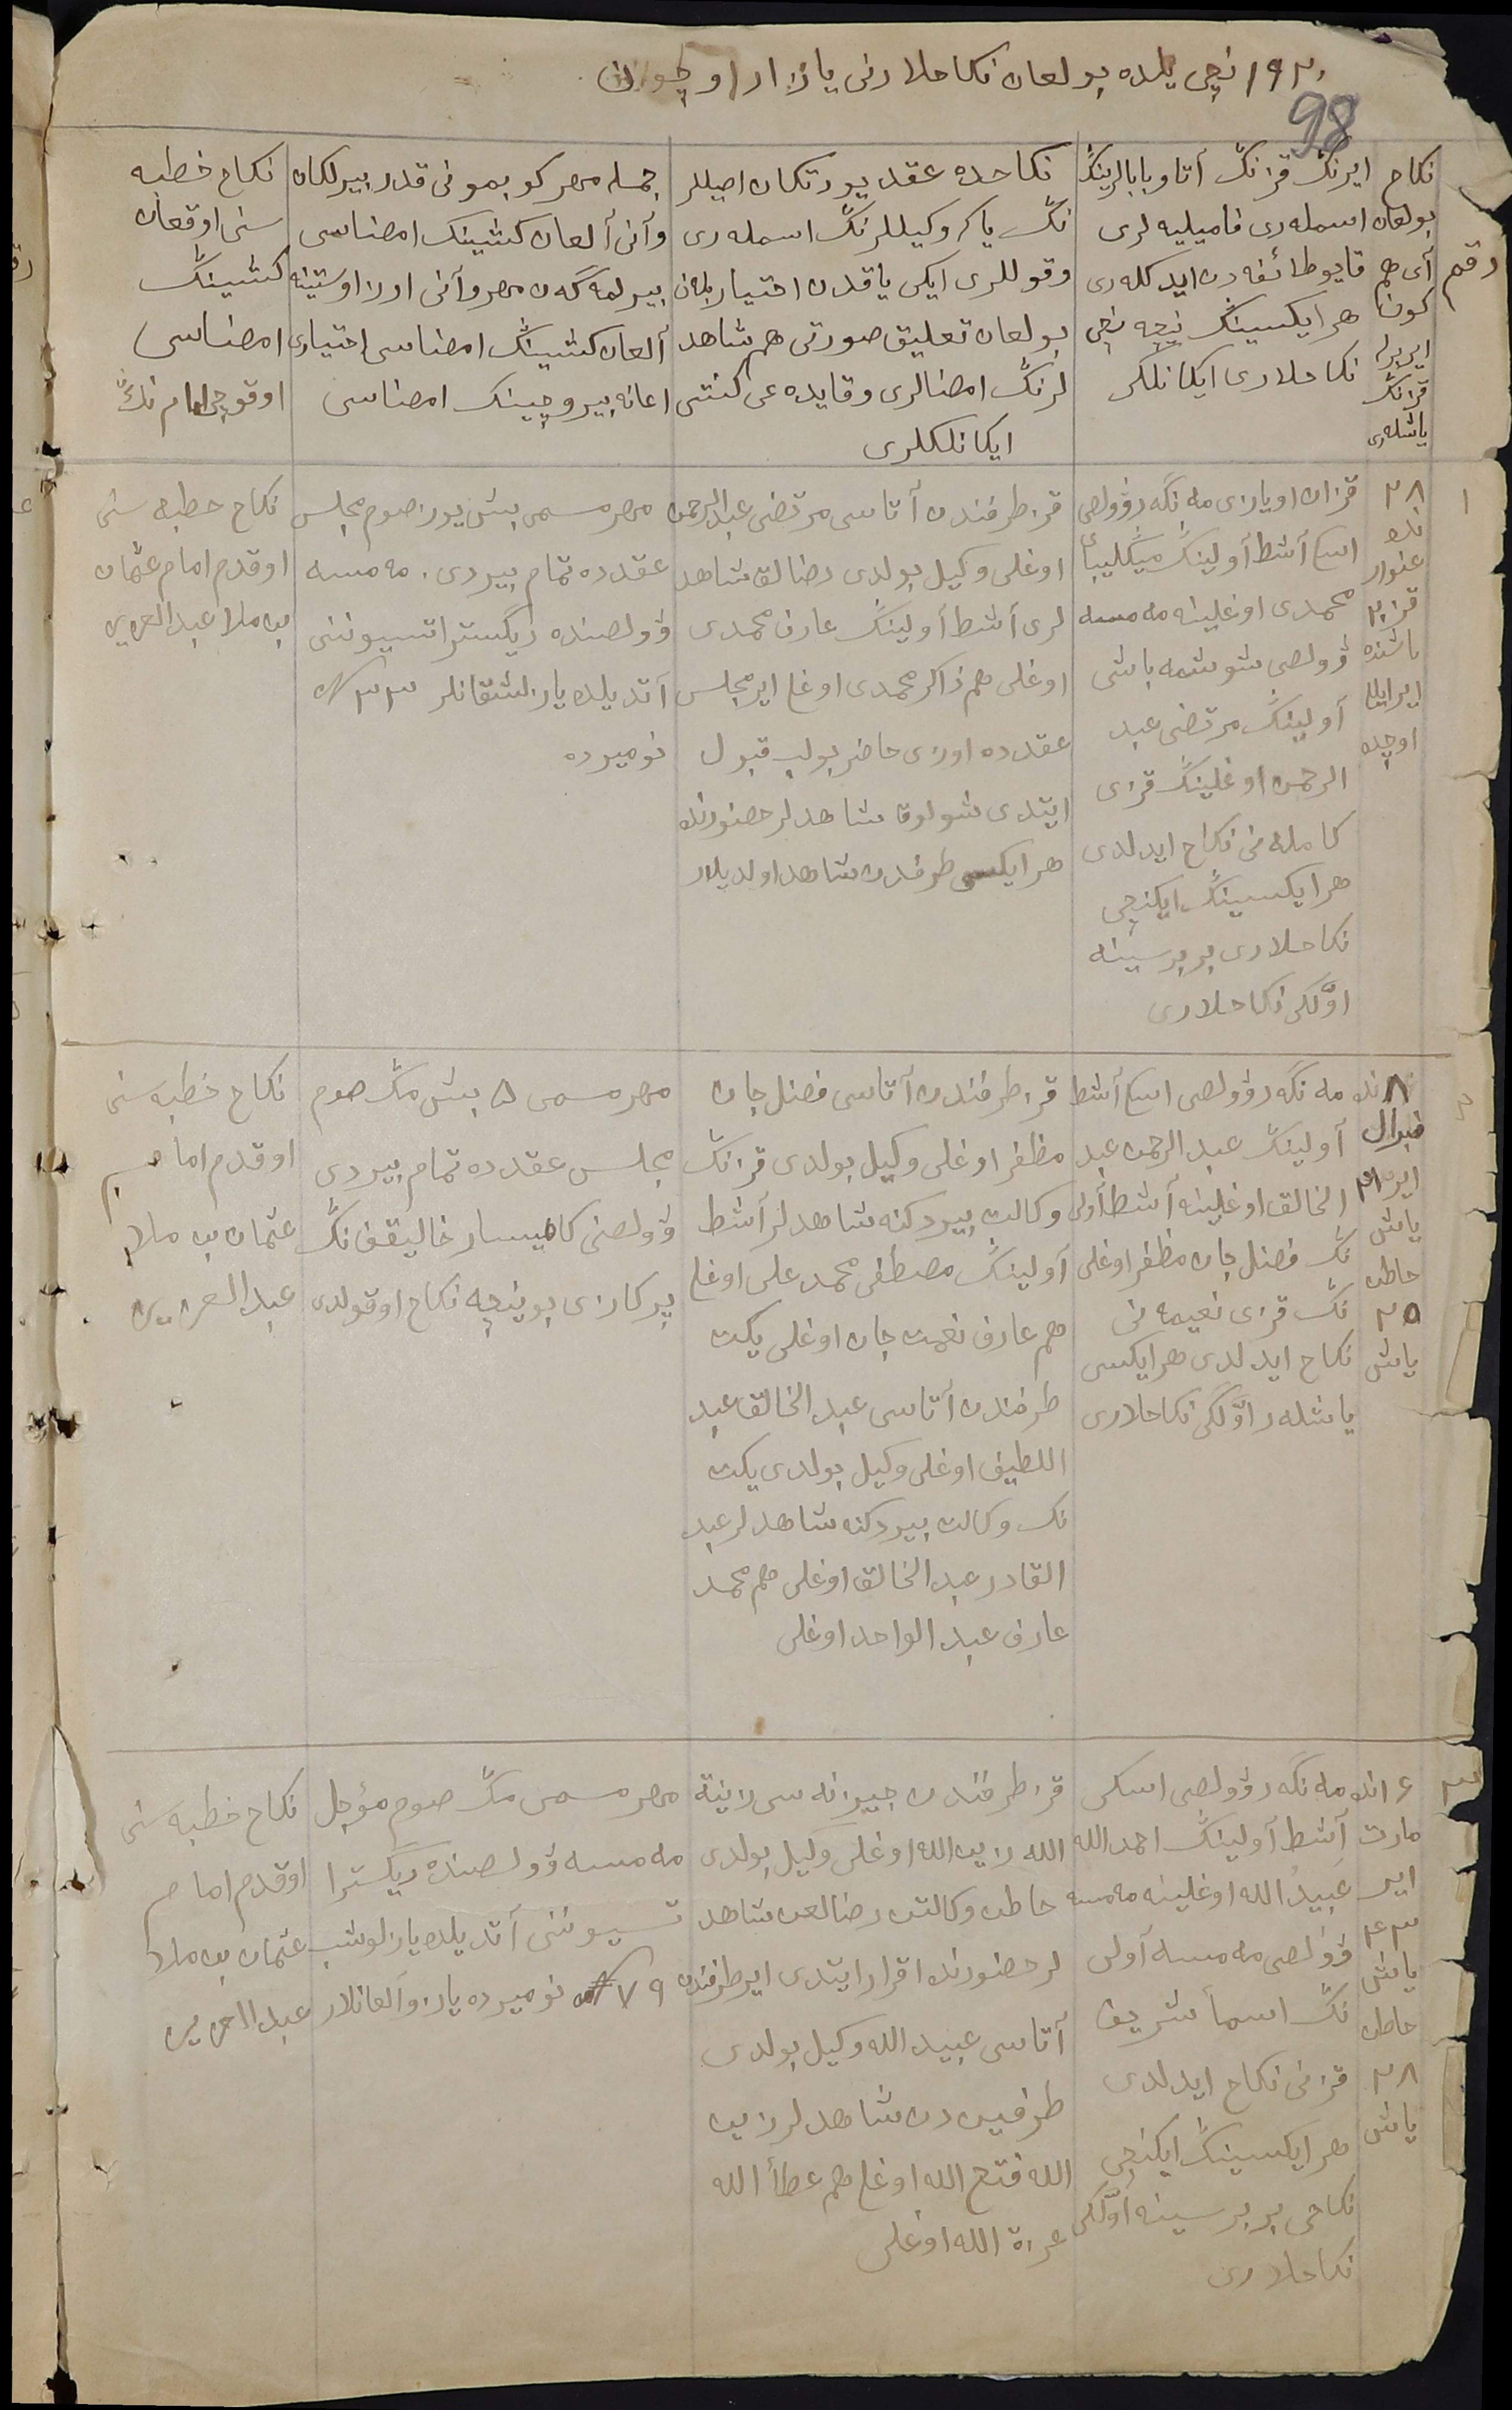 ۱۹۲۰ نچی یلده بولغان نکاحلارنی یازار اوچون
98
رقم
نکاح
بولغان
آی هم
کون
ایر برله
قزنڭ
یاشلهری
ایرنڭ قزنڭ آتا و بابالرینڭ
اسملهری فامیلیه لری
قایو طائفه دن ایدکلهری
هر ایکسینڭ نیچه نچی
نکاحلاری ایکانلکلر
نکاحده عقد یورتکان اصیللر
نڭ یاکه وکیللرنڭ اسملهری
وقوللری ایکی یاقدن اختیار بلان
بولغان تعلیق صورتی هم شاهد
لرنڭ امضالری وقایده عی کنتی
ایکانلکلری
جمله مهر کو بمو نی قدر بیرلکان
وآنی آلغان کشینڭ امضاسی
بیرلمهگهن مهر وآنی اوز اوستینه
آلغان کشینڭ امضاسی اختیاری
اعانه بیروچینڭ امضاسی
نکاح خطبه
سنی اوقعان
کشینڭ
امضاسی
اوقوچی امام نڭ
۱
۲۸
نده
غنوار
قز ۲۰
یاشنده
ایر
اوچده
قزان اویازی مه نگه ر ۋولصی
اسکی آشط آولینڭ
محمدی اوغلینه مه مسه
ۋولصی شوشمه باشی
آولینڭ مرتضی عبد
الرحمن اوغلینڭ قزی
کامله نی نکاح ایدلدی
هر ایکسینڭ ایکنچی
نکاحلاری بر برسینه
اوّلگی نکاحلاری
قز طرفندن آتاسی مرتضی عبدالرحمن
اوغلی وکیل بولدی رضالق شاهد
لری آشط آولینڭ عارف محمدی
اوغلی هم ذاکر محمدی اوغلی ایر مجلس
عقدده اوزی حاضر بولب قبول
ایتدی شولوق شاهدلر حضورنده
هر ایکسی طرفندن شاهد اولدیلار
مهر مسمی بش یوز صوم مجلس
عقدده تمام بیردی. مه مسه
ۋولصنده ریگستراتسیوننی
آتدیلده یازلشقانلر ۳۳ №
نومیرده
نکاح خطبه سنی
اوقدم امام عثمان
بن ملا عبدالعزیز
۲
۸ نده
فبرال
ایر ۳۱
یاش
خاطن
۲۵
یاش
مه نگه ر ۋولصی اسکی آشط
آولینڭ عبد الرحمن عبد
الخالق اوغلینه آشط آولی
نڭ فضل جان مظفر اوغلی
نڭ قزی نعیمه نی
نکاح ایدلدی هر ایکسی
یاشلهر اوّلگی نکاحلاری
قز طرفندن آتاسی فضل جان
مظفر اوغلی وکیل بولدی قزنڭ
وکالت بیردکنه شاهدلر آشط
آولینڭ مصطفی محمد علی اوغلی
هم عارف نعمت جان اوغلی یکت
طرفندن آتاسی عبد الخالق عبد
اللطیف اوغلی وکیل بولدی یکت
نک وکالت بیردکنه شاهدلر عبد
القادر عبد الخالق اوغلی هم محمد
عارف عبد الواحد اوغلی
مهر مسمی ۵ بش مڭ صوم
مجلس عقدده تمام بیردی
ۋولصنی کامیسار خالیقف نڭ
بوینچه نکاح اوقولدی
نکاح خطبه سنی
اوقدم امام
عثمان بن ملا
عبد العزیز
۳
۱۶ نده
مارت
ایر
۴۳
یاش
خاطن
۲۸
یاش
مه نگه ر ۋولصی اسکی
آشط آولینڭ احمد الله
عبید الله اوغلینه مه مسه
ۋولصی مه مسه آولی
نڭ اسمأ شریف
قزنی نکاح ایدلدی
هر ایکسینڭ ایکنچی
نکاحی بر برسینه اوّلگی
نکاحلاری
قز طرفندن
الله زین الله اوغلی وکیل بولدی
خاطن وکالتن رضالغن شاهد
لر حضورنده اقرار ایتدی ایر طرفندن
آتاسی عبید الله وکیل بولدی
طرفین دن شاهدلر زین
الله فتح الله اوغلی هم عطأ الله
عزة الله اوغلی
مهر مسمی مڭ صوم مؤجل
مه مسه ۋولصنده ریگسترا
تسیوننی آتدیلده یازلوشب
۷۹ № نومیرده یازو آلغانلار
نکاح خطبه سنی
اوقدم امام
عثمان بن ملا
عبد العزیز